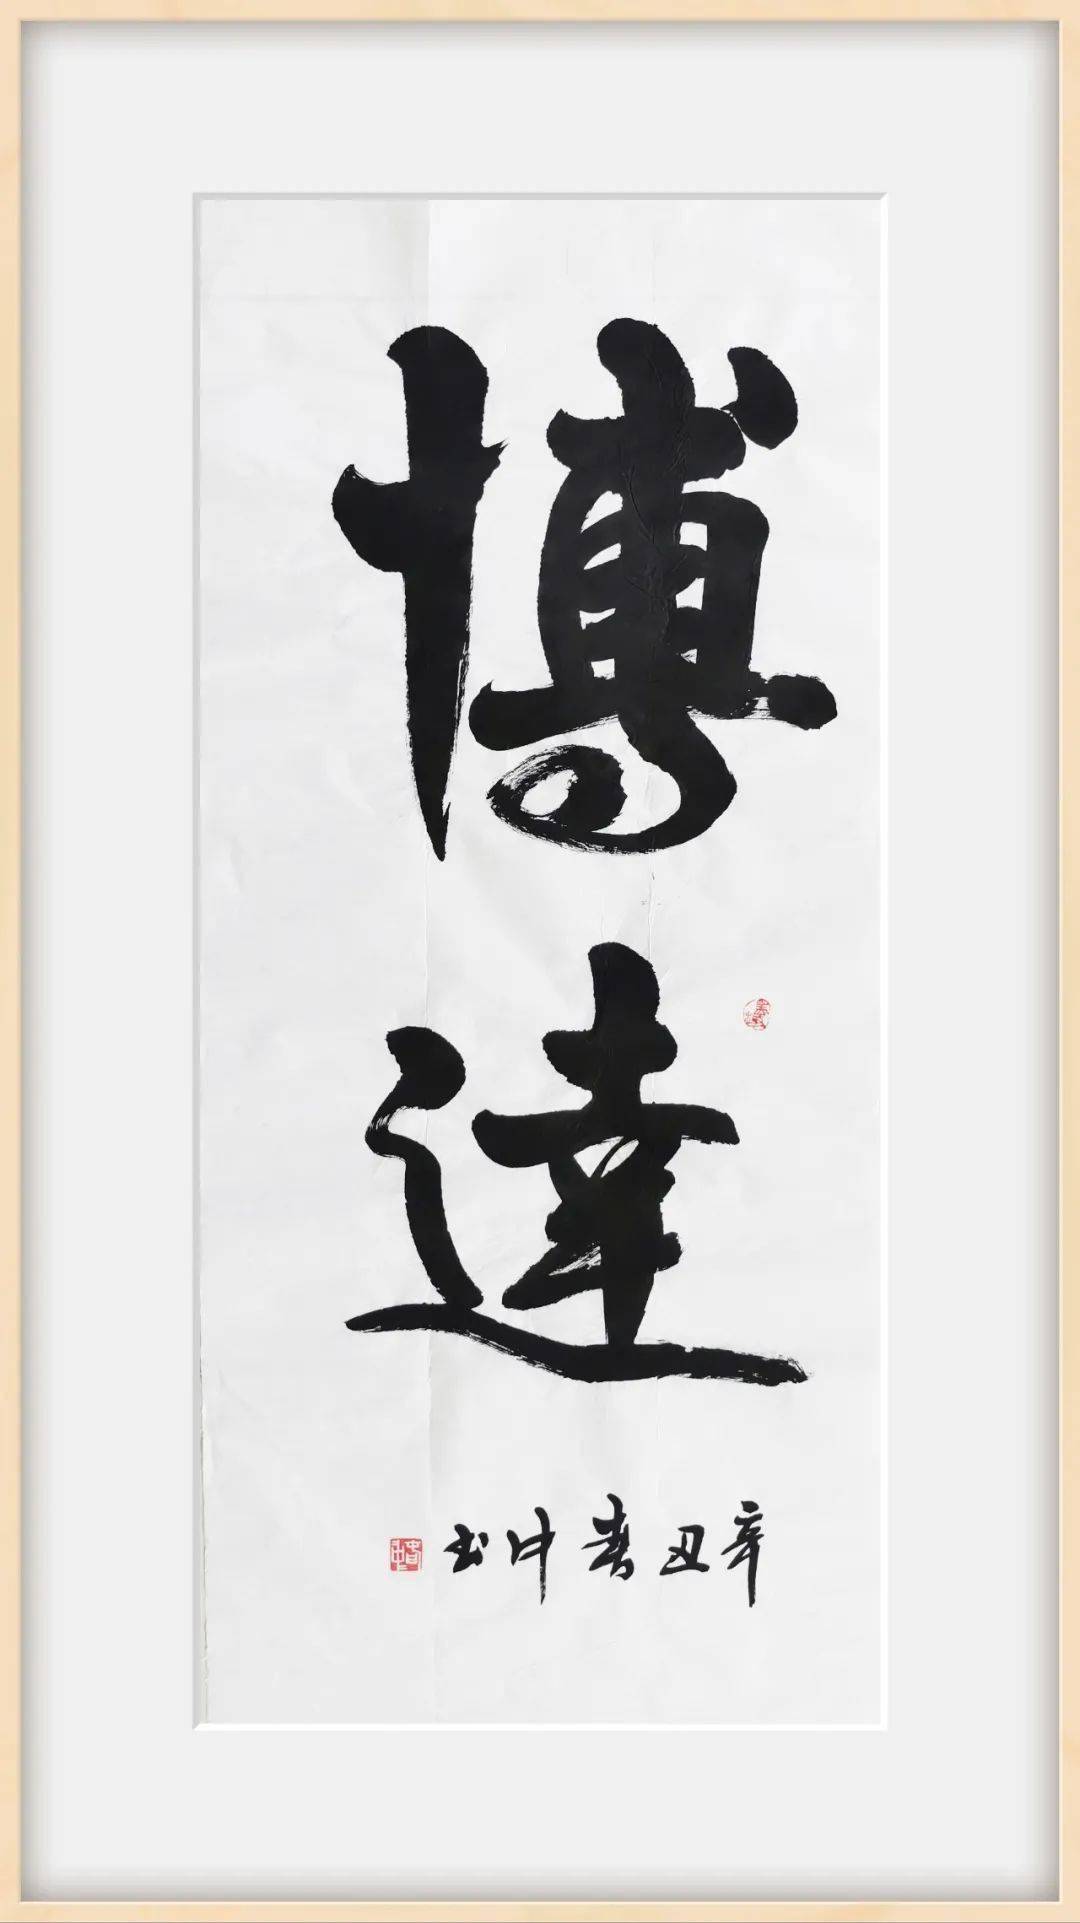 博
達
辛丑春中书